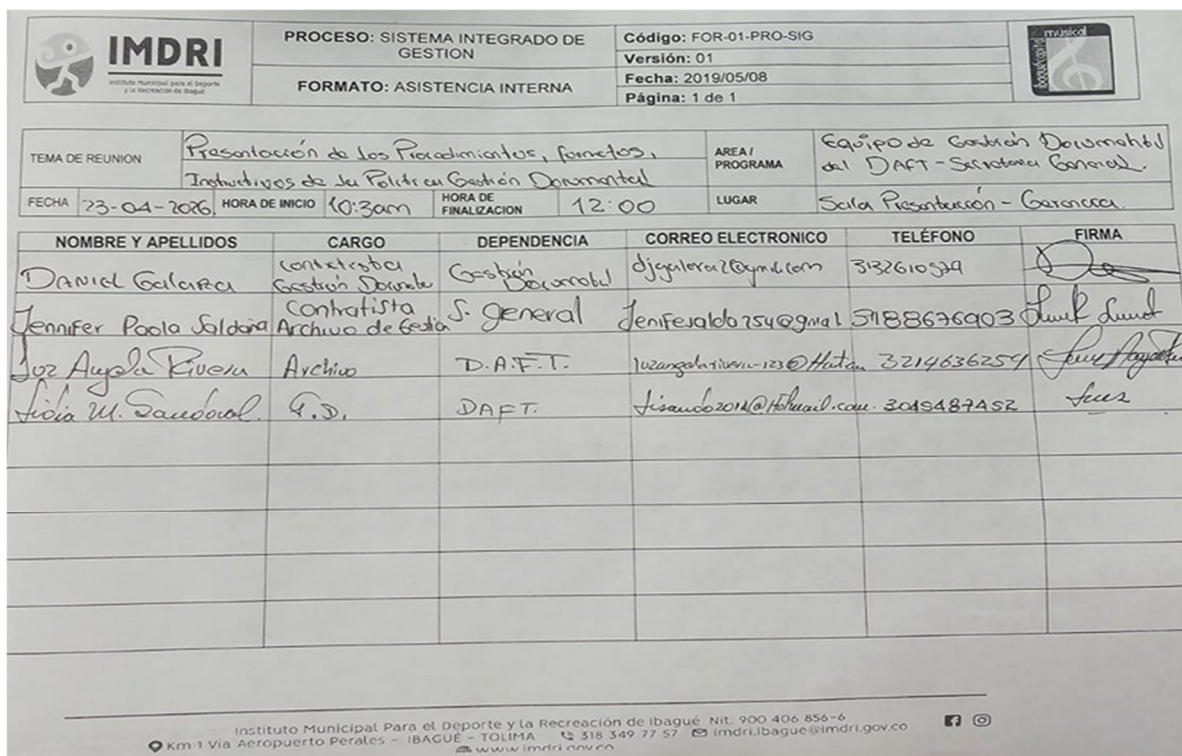 IMDRI
Instituto Municipal para el Deporte
y la Recreación de Ibagué
PROCESO: SISTEMA INTEGRADO DE
GESTION
FORMATO: ASISTENCIA INTERNA
Código: FOR-01-PRO-SIG
Versión: 01
Fecha: 2019/05/08
Página: 1 de 1
musical
TEMA DE REUNION
Presentación de los Procedimientos, formatos,
Instructivos de la Política Gestión Documental
AREA /
PROGRAMA
Equipo de Gestión Documental
del DAFT - Secretaria General.
FECHA 23-04-2026 HORA DE INICIO 10:30am HORA DE FINALIZACION 12:00 LUGAR Sala Presentación - Gerencia.
NOMBRE Y APELLIDOS CARGO DEPENDENCIA CORREO ELECTRONICO TELÉFONO FIRMA
DANIEL GALARZA Contratista Gestión Gestión Documental
Jennifer Paola Saldaña Contratista Archivo de S. general 3188676903
Luz Angela Rivera Archivo D.A.F.T. 3214636259
Lidia M. Sandoval. G.D. DAFT. 3045487452
Instituto Municipal Para el Deporte y la Recreación de Ibagué Nit: 900 406 856-6
Km 1 Vía Aeropuerto Perales – IBAGUÉ – TOLIMA 318 349 77 57 imdri.ibague@imdri.gov.co
www.imdri.gov.co